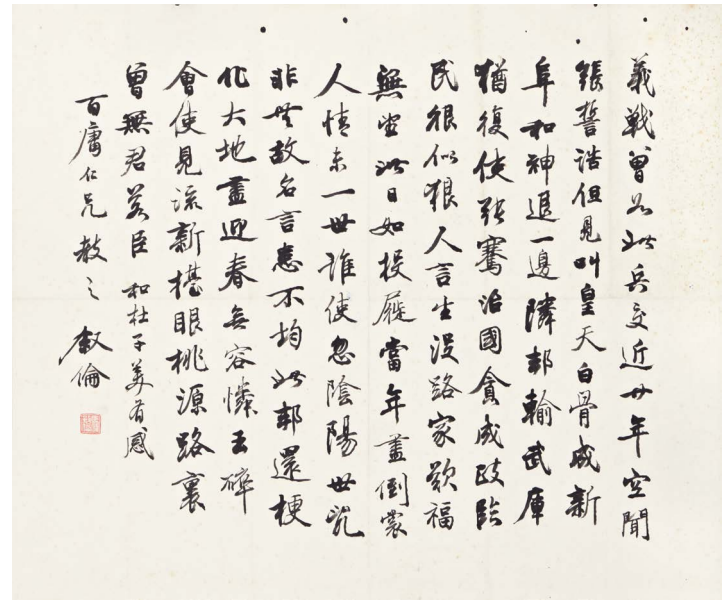 義戰曾若此兵交近廿年空聞
張誓誥但見叫皇天白骨成新
阜和神進一邊隣邦輸武庫
猶復使張騫治國貪成跂臨
民很似狼人言生沒路家歎福
無堂此日如投屣當年盡倒裳
人情未一世誰使忽陰陽世亂
非無故名言患不均此邦還梗
化大地盡迎春無容憐玉碎
會使見流新 眼桃源路裏
曾無君若臣 和杜子美有感
百庸仁兄教之 敘倫